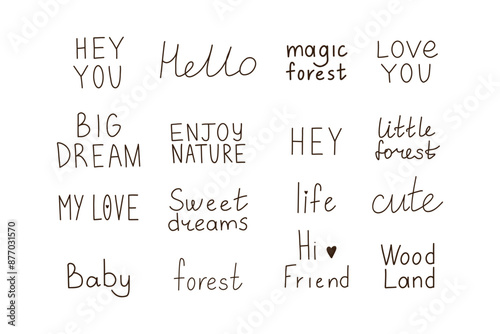 HEY
YOU
Hello
magic
forest
LOVE
YOU
BIG
DREAM
ENJOY
NATURE
HEY
little
forest
MY LOVE
Sweet
dreams
life
cute
Baby
forest
Hi ♥
Friend
Wood
Land
Adobe Stock | #877031570